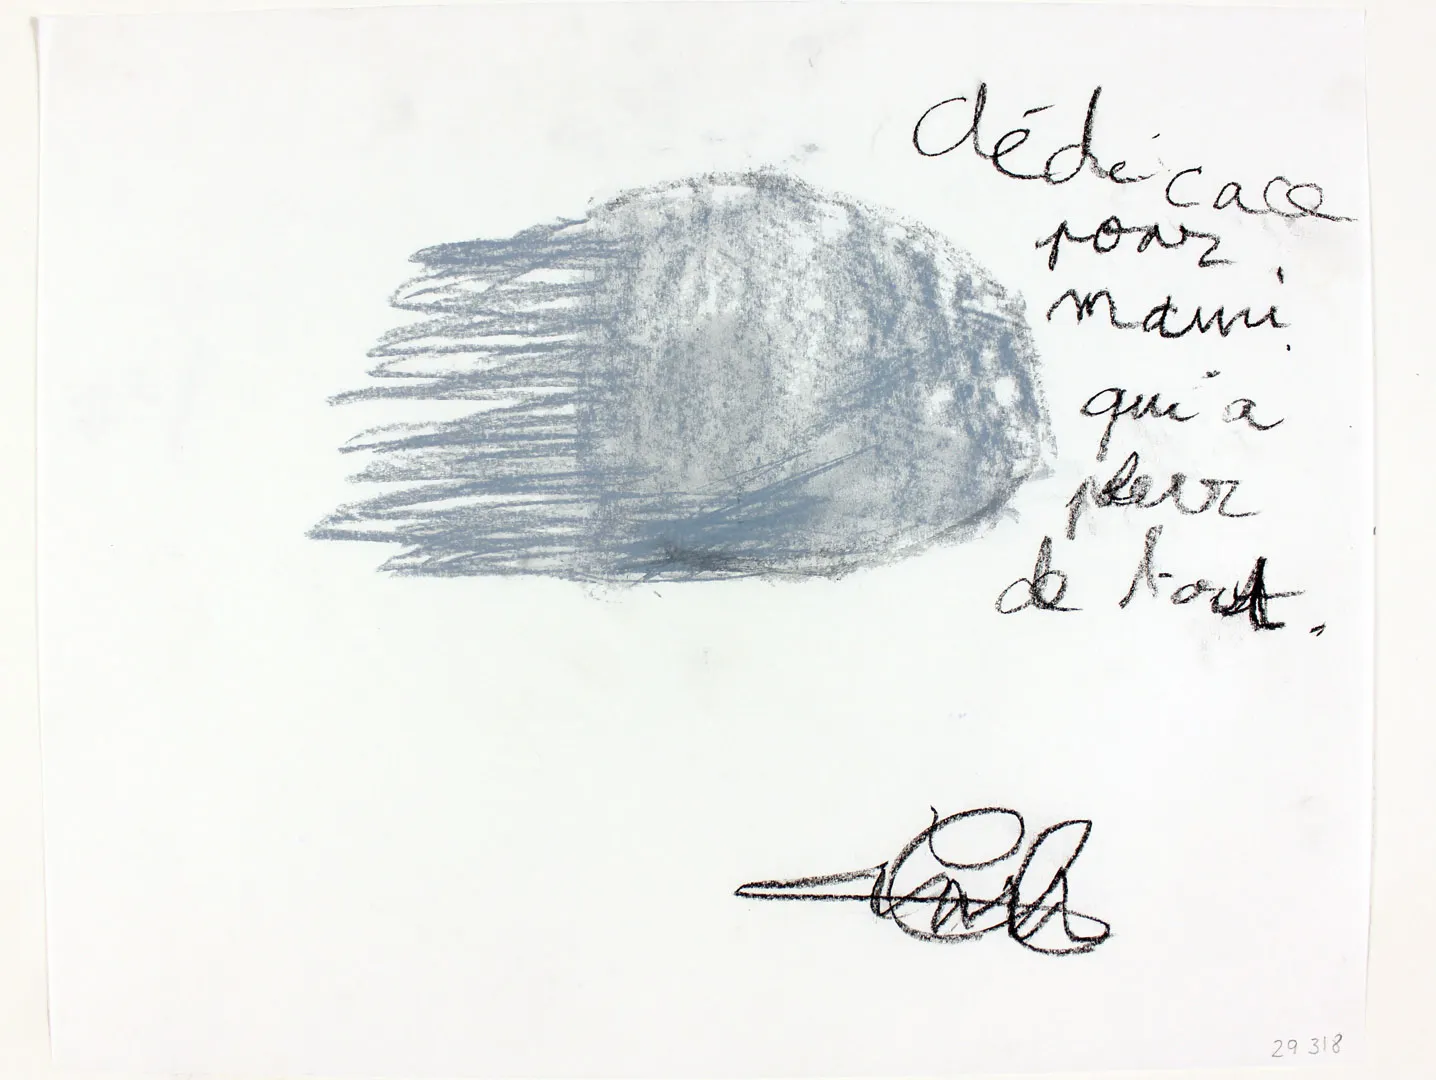 dédicace
pour
mami
qui a
peur
de tout.
29 318